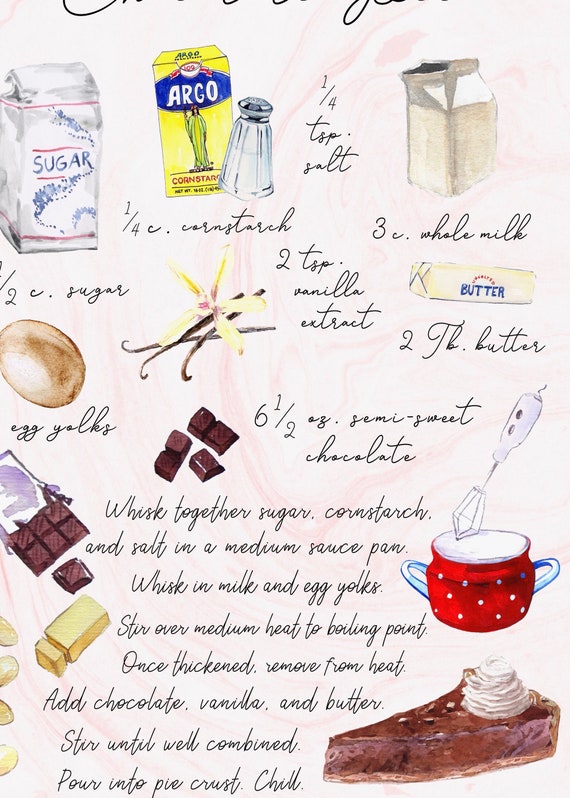 ARGO
100
ARGO
CORNSTARC
NET WT. 16 OZ.
SUGAR
1/4
tsp.
salt
1/4 c. cornstarch
3 c. whole milk
1/2 c. sugar
2 tsp.
vanilla
extract
UNSALTED
BUTTER
2 Tb. butter
egg yolks
6 1/2 oz. semi-sweet
chocolate
Whisk together sugar, cornstarch,
and salt in a medium sauce pan.
Whisk in milk and egg yolks.
Stir over medium heat to boiling point.
Once thickened, remove from heat.
Add chocolate, vanilla, and butter.
Stir until well combined.
Pour into pie crust. Chill.